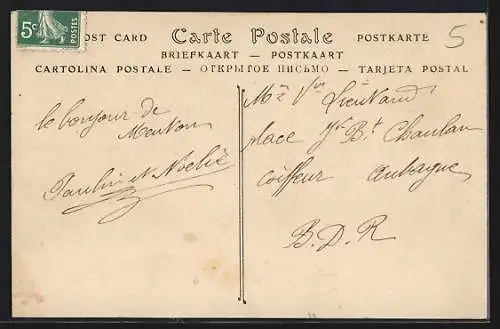 5c
POSTES
POST CARD Carte Postale POSTKARTE
BRIEFKAART — POSTKAART
CARTOLINA POSTALE — ОТКРЫТОЕ ПИСЬМО — TARJETA POSTAL
5
le bonjour de
Menton
Paulin et Noélie
Mme Vve Lieutaud
place J. Bt Chaulan
Coiffeur Aubagne
B. D. R